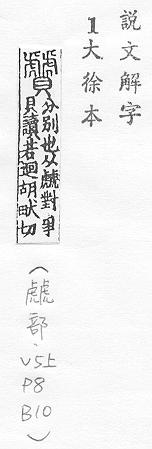 説文解字
1大徐本
贙分別也从虤對爭
貝讀若迴胡畎切
(虤部、
V5上
P8
B10)